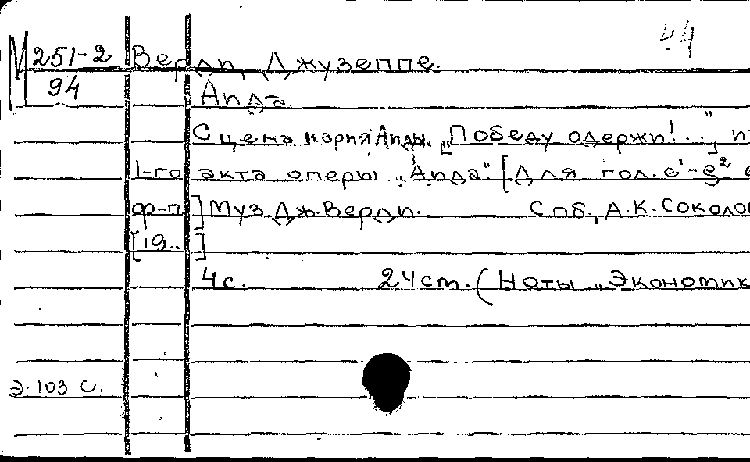 44
М 251-2 Верди, Джузеппе.
94
Аида
Сцена и ария Аиды. „Победу одержи!..", и
1-го акта оперы „Аида". [Для гол. c¹-в² с
ф-п] Муз. Дж. Верди. Спб., А.К. Соколо
[19..]
4 с. 24 ст. (Ноты „Экономик
Э-103 С.